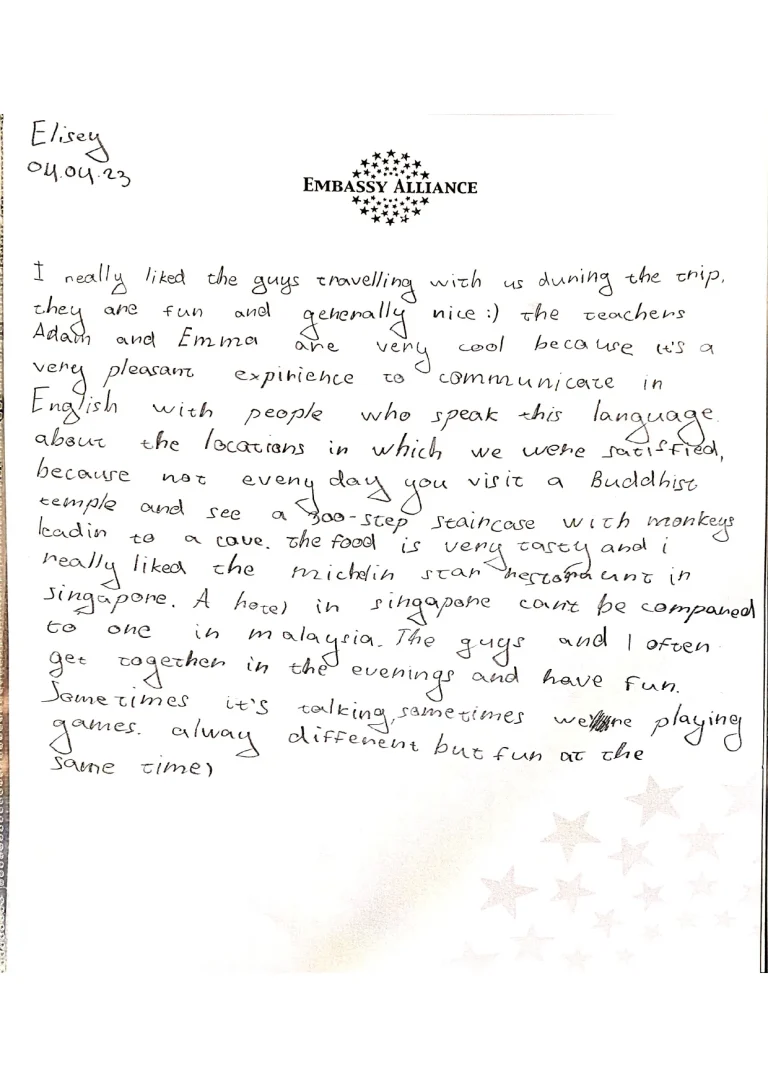 Elisey
04.04.23
EMBASSY ALLIANCE
I really liked the guys travelling with us during the trip,
they are fun and generally nice :) the teachers
Adam and Emma are very cool because it's a
very pleasant expirience to communicate in
English with people who speak this language.
about the locations in which we were satisfied,
because not every day you visit a Buddhist
temple and see a 300-step staircase with monkeys
leadin to a cave. the food is very tasty and i
really liked the michelin star restoraunt in
singapore. A hotel in singapore can't be compared
to one in malaysia. The guys and I often
get together in the evenings and have fun.
Sometimes it's talking, sometimes we're playing
games. alway different but fun at the
same time)